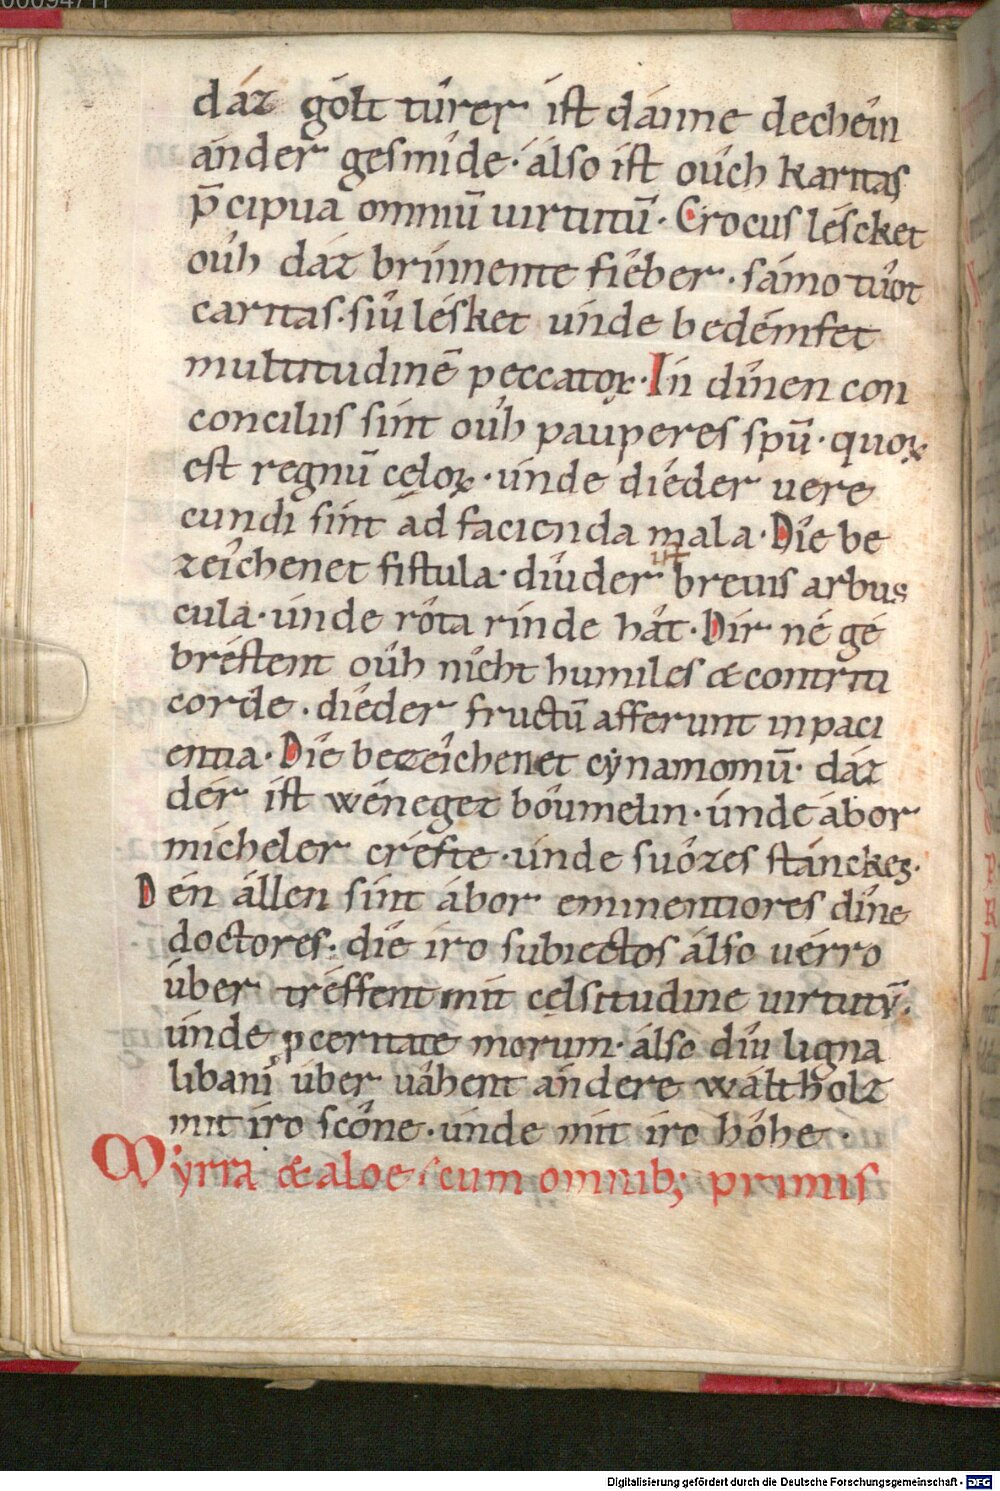 dáz gólt tûrer ist dánne dechéin
ánder gesmîde· álso ist oûch karitas
p̄cipua omniū uirtutū· Crocus lésket
oûh dáz brínnente fîeber· sámo tûot
caritas· siû lésket únde bedémfet
multitudinē peccatoꝝ· In dînen con
conciliis sínt oûh pauperes spū· quoꝝ
est regnū celoꝝ· únde dîeder vere
cundi sínt ad facienda mala· Díe be
zeîchenet fistula· dîuder breuis arbus
cula· únde rôta rínde hât· Dír né ge
bréstent oûh nîeht humiles & contriti
corde· dîeder fructū afferunt inpaci
entia· Díe bezeîchenet cynamomū· dáz
dér ist wéneger bôumelin· únde ábor
micheler créfte· únde suôzes stánckes·
Dén állen sínt ábor eminentiores dîne
doctores· díe íro subiectos álso uérro
úber tréffent mít celsitudine uirtutū·
únde ꝓceritate morum· álso díu ligna
libani úber uâhent ándere wáltholz
mit íro scône· únde mít íro hôhe·
Myrra & aloe cum omnib; primis
Digitalisierung gefördert durch die Deutsche Forschungsgemeinschaft - DFG